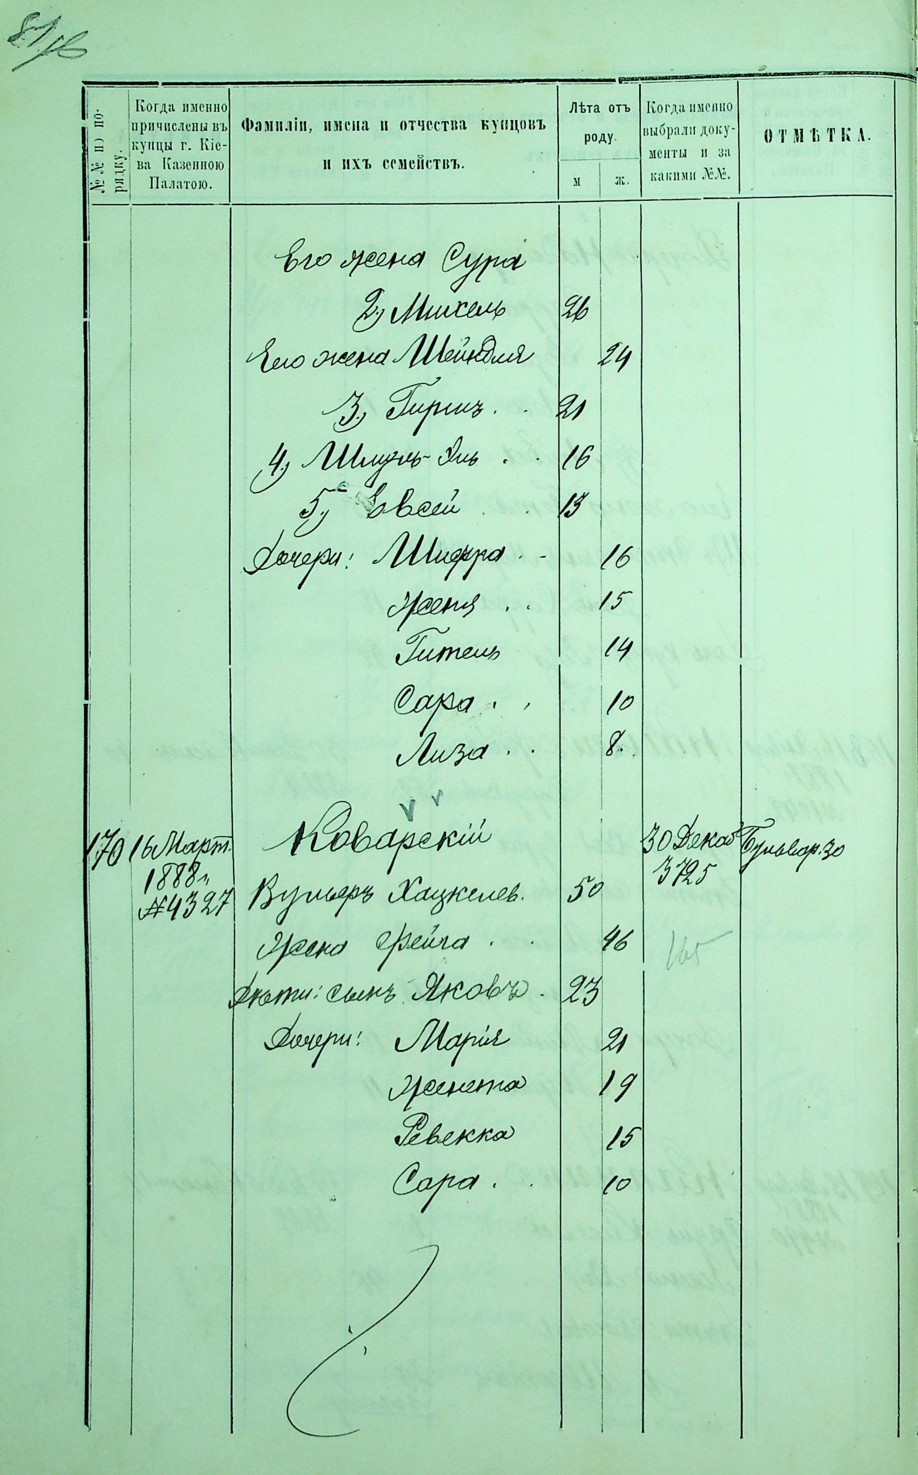 №№ по по-
рядку.
Когда именно
причислены въ
купцы г. Кіе-
ва Казенною
Палатою.
Фамиліи, имена и отчества купцовъ
и ихъ семействъ.
Лѣта отъ
роду.
м
ж.
Когда именно
выбрали доку-
менты и за
какими №№.
ОТМѢТКА.
Его жена Сура
2) Михель 26
Его жена Шейндля 24
3) Гиршъ . . 21
4) Шмуль- . . 16
5) Евсей . . 13
Дочери: Шифра . - 16
Женя . . 15
Гитель 14
Сара . . 10
Лиза . . 8.
170 16 Март. Коварскій 30 Декаб Бульвар. 30
1888г. 3725
№4327 Вульфъ Хацкелев. 50
Жена Фейга . . 46 165
Дѣти: сынъ Яковъ . 23
Дочери: Марія 21
Женета 19
Ревекка 15
Сара . . 10